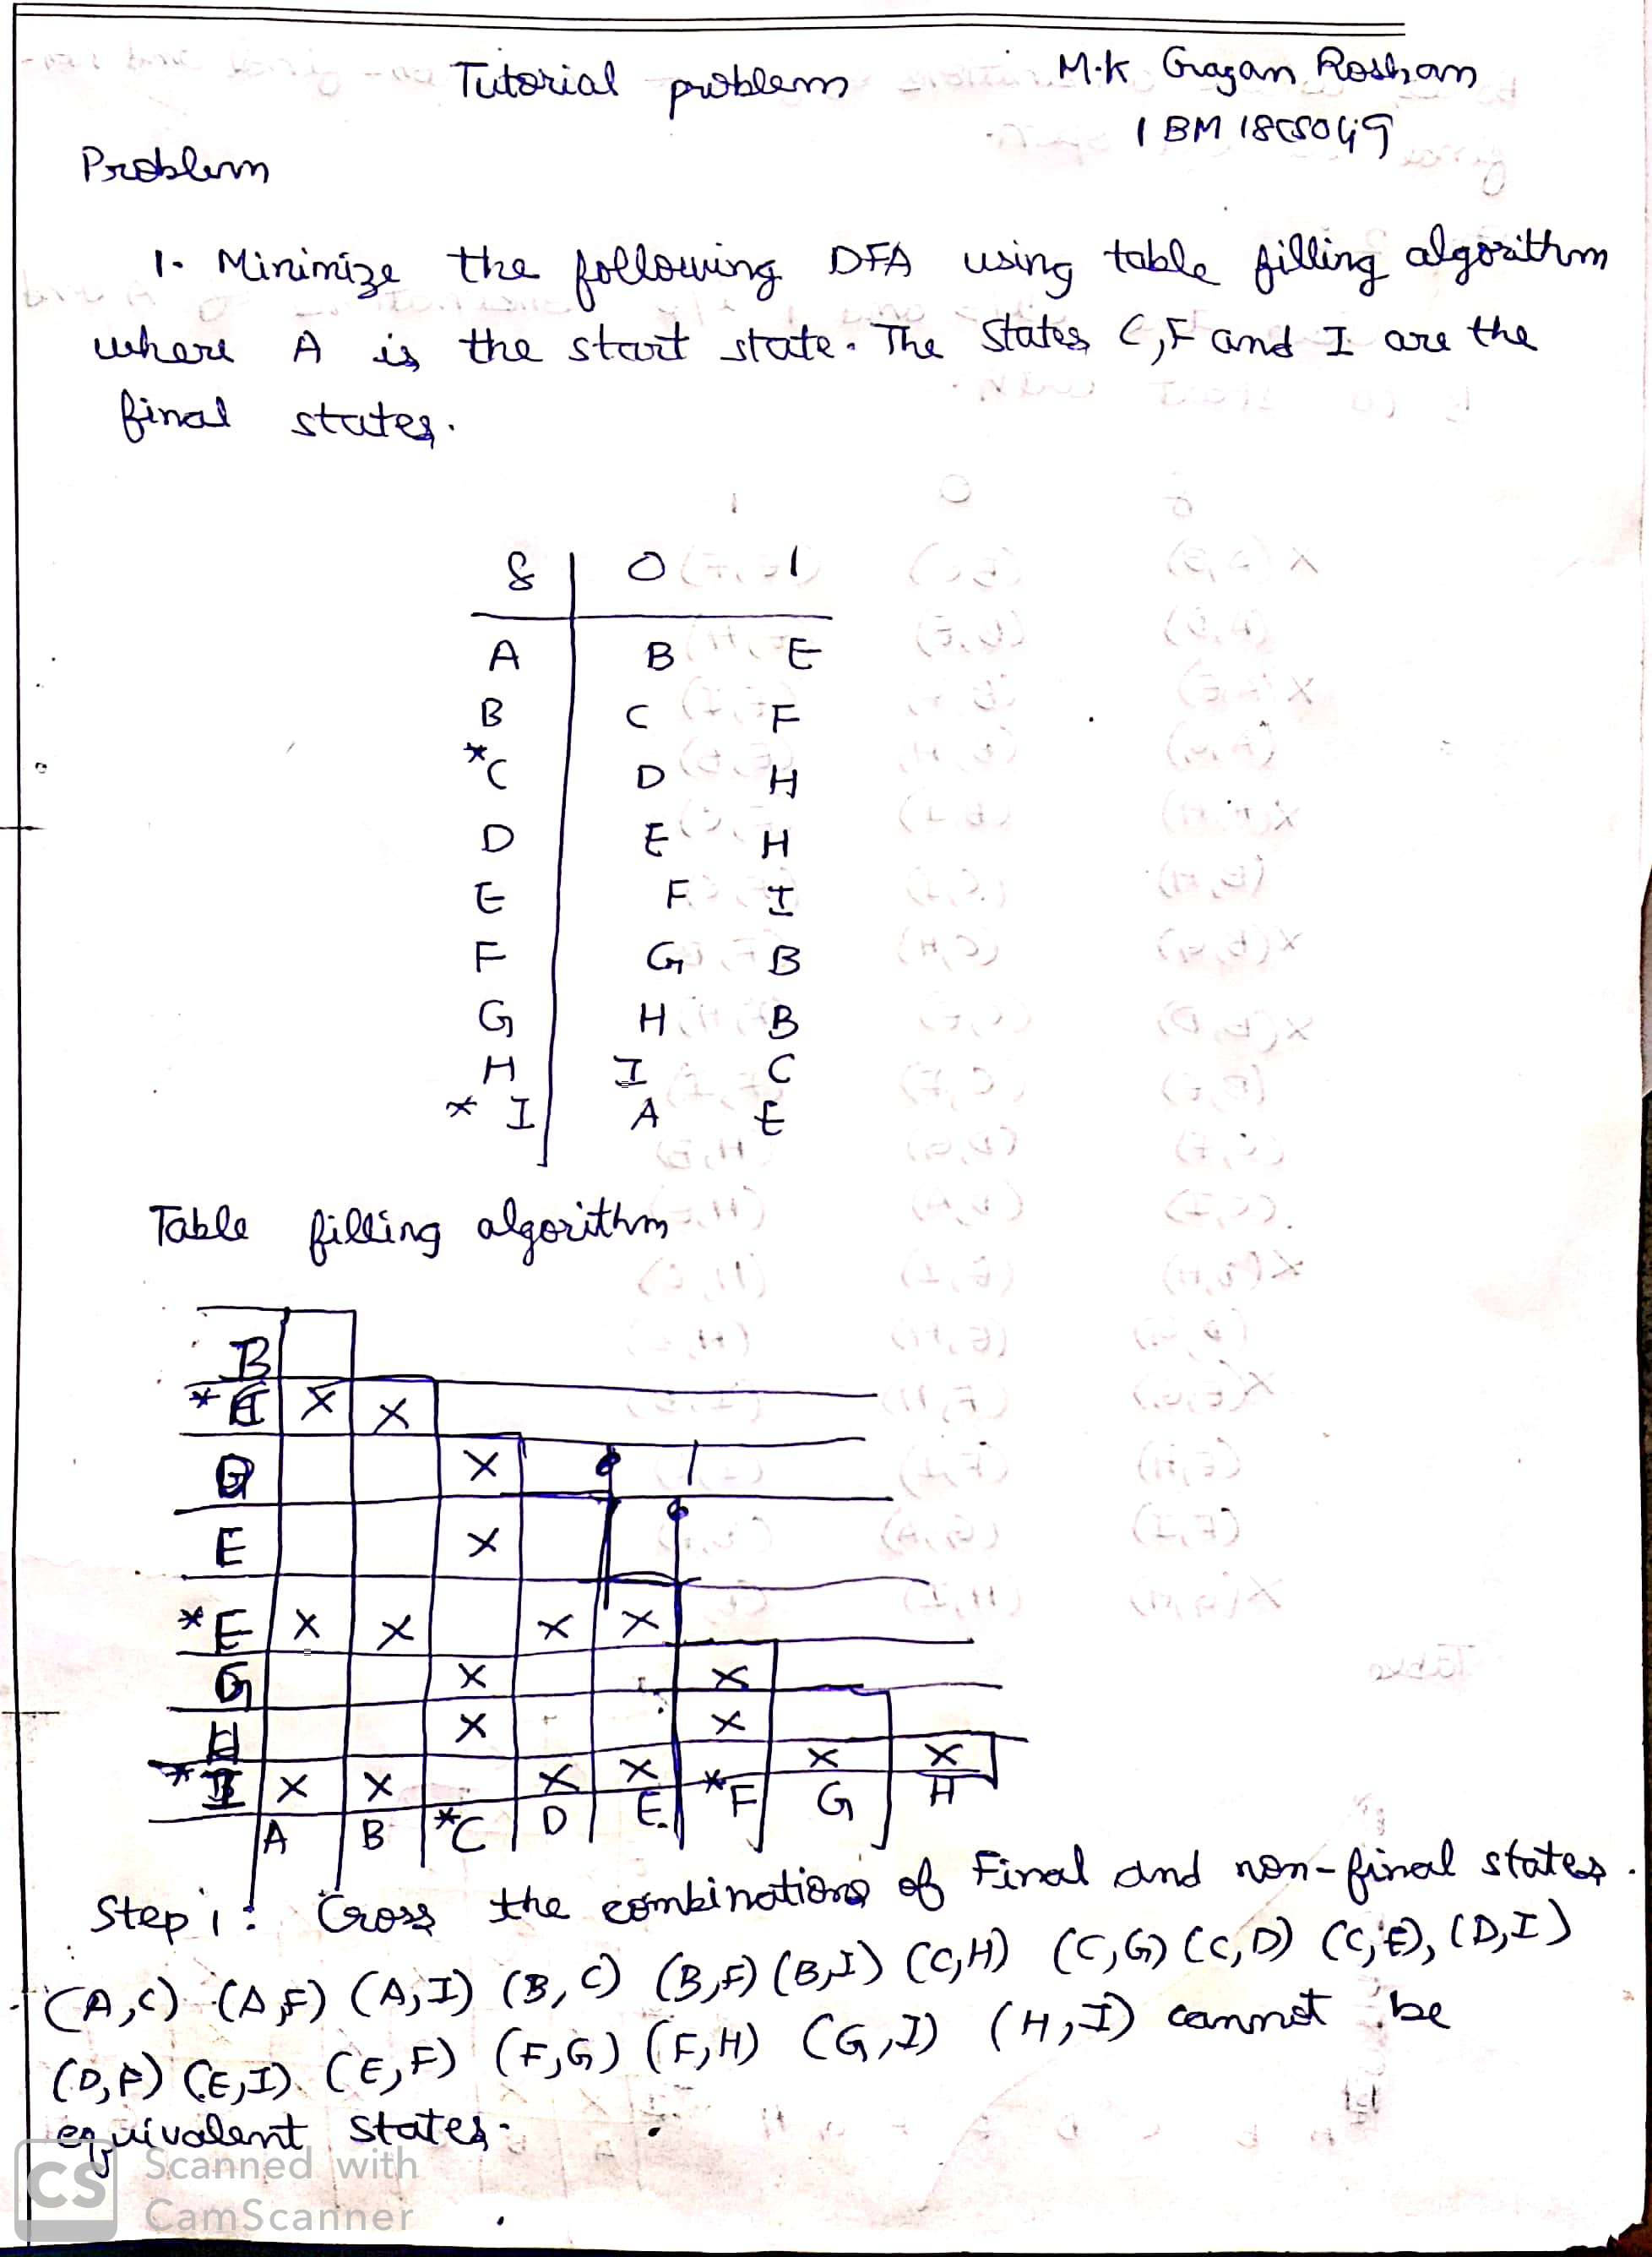 Tutorial problem
M.K Gagan Roshan
1BM18CS049
Problem
1. Minimize the following DFA using table filling algorithm
where A is the start state. The states C, F and I are the
final states.
δ 0 1
A B E
B C F
*C D H
D E H
E F I
F G B
G H B
H I C
* I A E
Table filling algorithm
B
*C X X
D X
E X
*F X X X X
G X X
H X X
*I X X X X X X
A B *C D E *F G H
Step 1: Cross the combinations of Final and non-final states.
(A,C) (A,F) (A,I) (B,C) (B,F) (B,I) (C,H) (C,G) (C,D) (C,E), (D,I)
(D,F) (E,I) (E,F) (F,G) (F,H) (G,I) (H,I) cannot be
equivalent states.
CS Scanned with
CamScanner